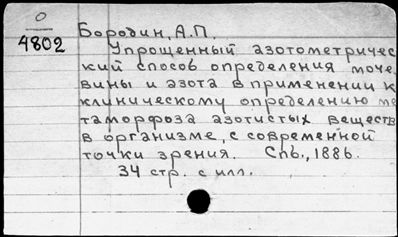 0
4802
Бородин, А.П.
Упрощенный азотометричес
кий способ определения моче
вины и азота в применении к
клиническому определению ме
таморфоза азотистых веществ
в организме, с современной
точки зрения. Спб., 1886.
34 стр. с илл.